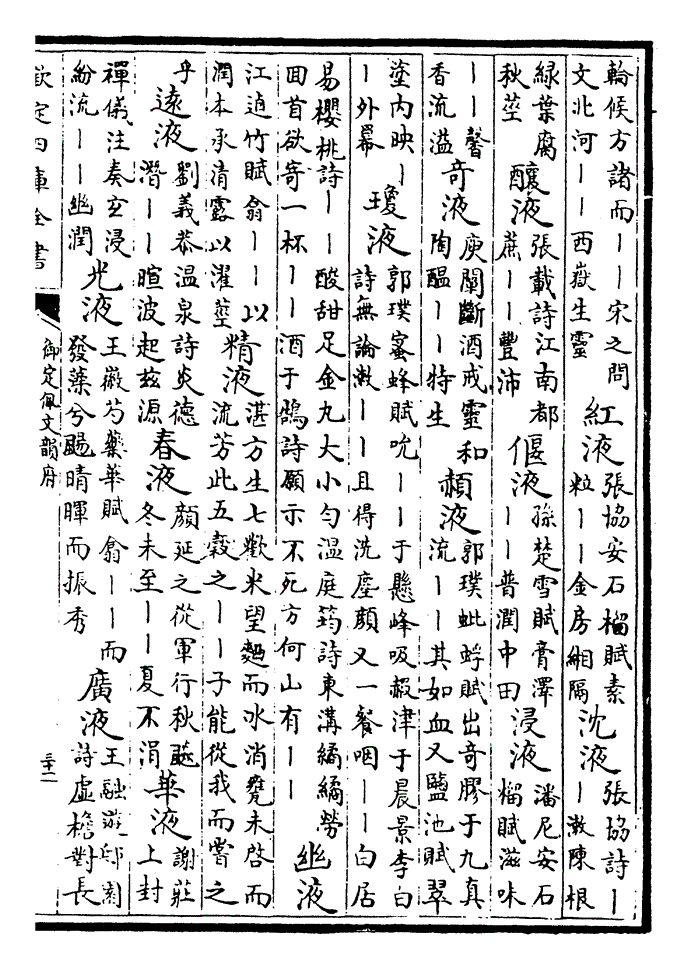 輪候方諸而丨丨宋之問
文北河丨丨西嶽生靈
紅液
張協安石榴賦素
粒丨丨金房緗隔
沈液
張協詩丨
丨漱陳根
綠葉腐
秋莖
釀液
張載詩江南都
蔗丨丨豐沛
偃液
孫楚雪賦膏澤
丨丨普潤中田
浸液
潘尼安石
榴賦滋味
丨丨馨
香流溢
奇液
庾闡斷酒戒靈和
陶醞丨丨特生
赬液
郭璞蚍蜉賦出奇膠于九真
流丨丨其如血又鹽池賦翠
塗內映丨
丨外冪
瓊液
郭璞蜜蜂賦吮丨丨于懸峰吸赮津于晨景李白
詩無論漱丨丨且得洗塵顔又一餐咽丨丨白居
易櫻桃詩丨丨酸甜足金丸大小勻溫庭筠詩東溝繘繘勞
回首欲寄一杯丨丨酒于鵠詩願示不死方何山有丨丨
幽液
江逌竹賦翕丨丨以
潤本承清露以濯莖
精液
湛方生七歡米望麴而冰消甕未啓而
流芳此五穀之丨丨子能從我而嘗之
乎
遠液
劉義恭溫泉詩炎德
潛丨丨暄波起茲源
春液
顔延之從軍行秋飈
冬未至丨丨夏不涓
華液
謝莊
上封
禪儀注奏玄浸
紛流丨丨幽潤
光液
王徽芍藥華賦翕丨丨而
發蘂兮颺晴暉而振秀
廣液
王融遊邸園
詩虛檐對長
欽定四庫全書
御定佩文韻府
三十二